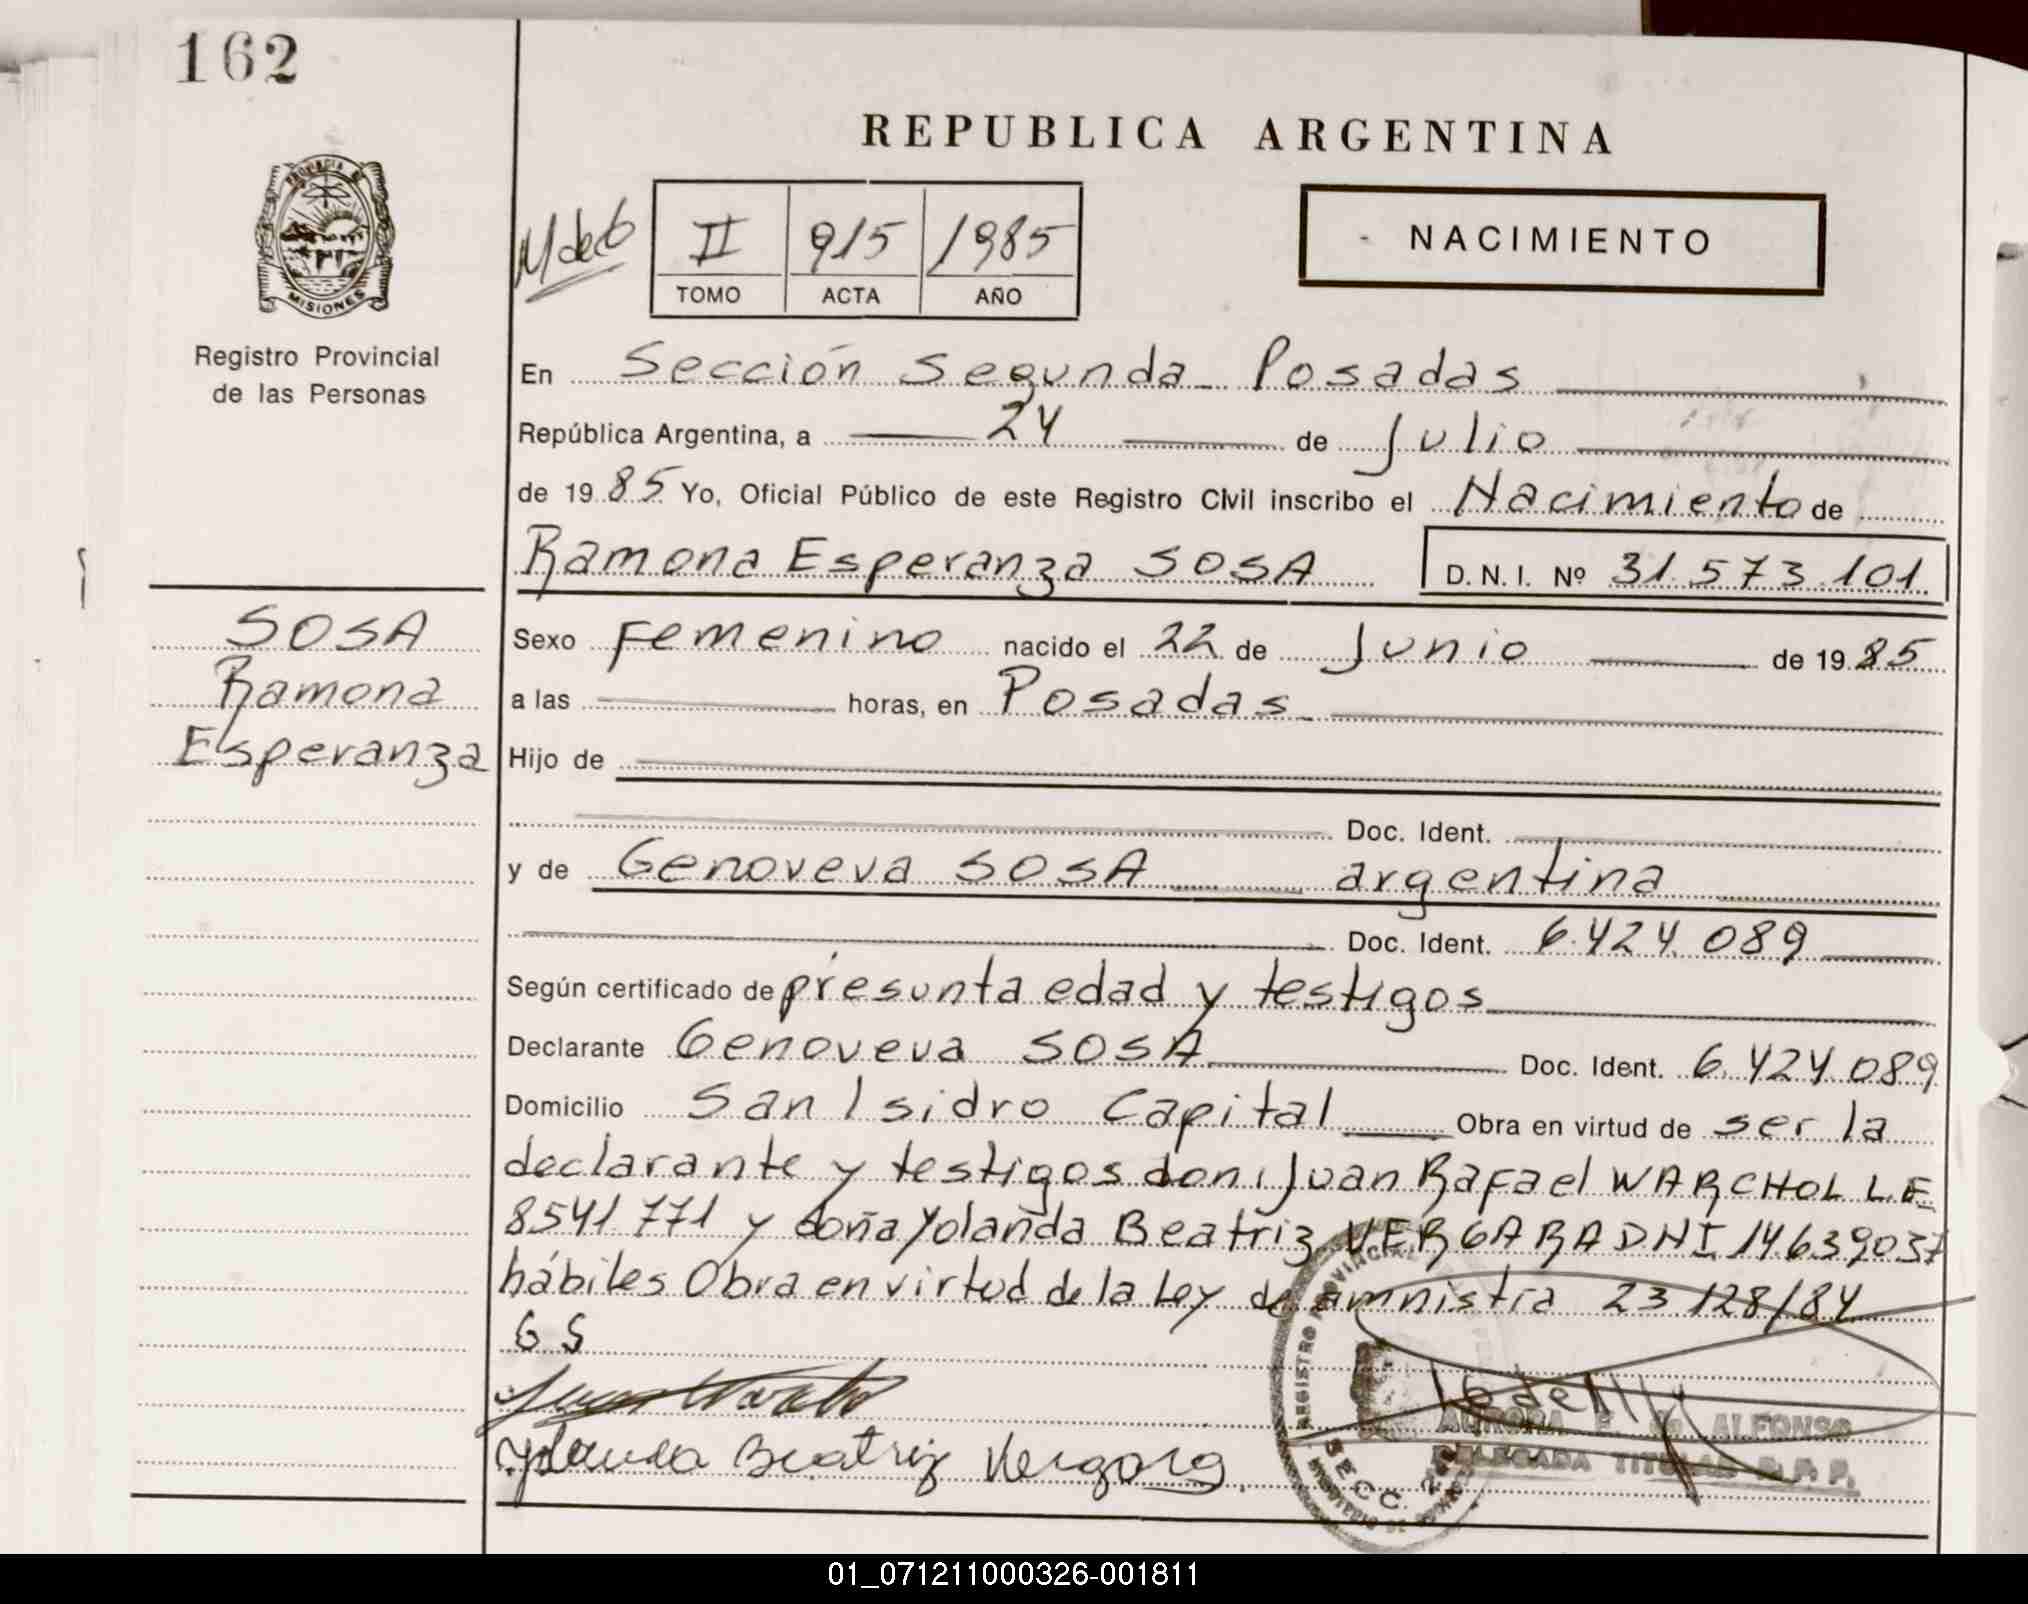 162
REPUBLICA ARGENTINA
PROVINCIA DE
MISIONES
Registro Provincial
de las Personas
II 915 1985
TOMO ACTA AÑO
NACIMIENTO
En Sección Segunda Posadas
República Argentina, a 24 de Julio
de 1985 Yo, Oficial Público de este Registro Civil inscribo el Nacimiento de
Ramona Esperanza SOSA D.N.I. Nº 31.573.101
SOSA
Ramona
Esperanza
Sexo Femenino nacido el 22 de Junio de 1985
a las horas, en Posadas
Hijo de
Doc. Ident.
y de Genoveva SOSA argentina
Doc. Ident. 6.424.089
Según certificado de presunta edad y testigos
Declarante Genoveva SOSA Doc. Ident. 6.424.089
Domicilio San Isidro Capital Obra en virtud de ser la
declarante y testigos don Juan Rafael WARCHOL L.E
8541771 y doña Yolanda Beatriz VERGARA DNI 14639037
hábiles Obra en virtud de la Ley de amnistia 23128/84
GS
Yolanda Beatriz Vergara
REGISTRO PROVINCIAL
SECC. 2
AURORA E. de ALFONSO
DELEGADA TITULAR R. P. P.
01_071211000326-001811